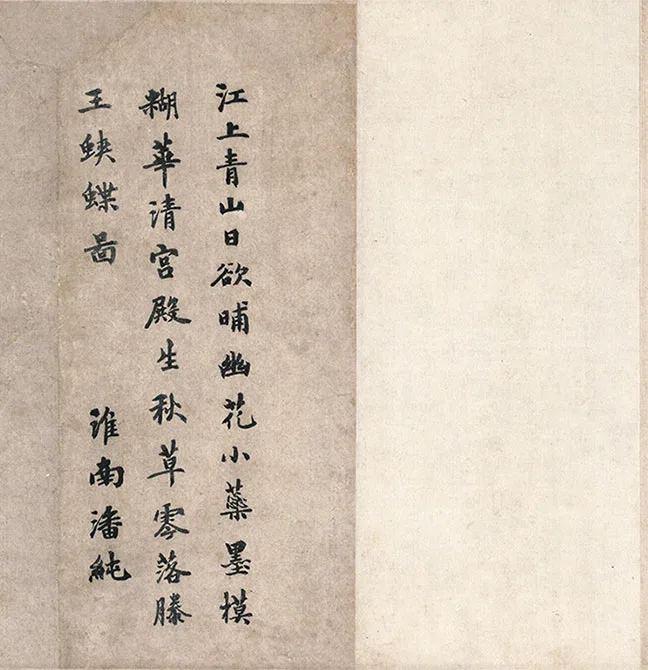 江上青山日欲晡幽花小蘂墨模
糊華清宮殿生秋草零落滕
王蛱蝶啚
淮南潘純